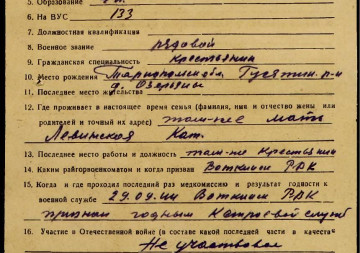 5. Образование
6. На ВУС 133
7. Должностная квалификация
8. Военное звание рядовой
9. Гражданская специальность крестьянин
10. Место рождения Тарнопольск. обл. Гусятин. р-н
11. Последнее место жительства д.
12. Где проживает в настоящее время семья (фамилия, имя и отчество жены или
родителей и точный их адрес) там-же мать
Левинская Кат.
13. Последнее место работы и должность там-же Крестьянин
14. Каким райгорвоенкоматом и когда призван Воткинск РВК
15. Когда и где проходил последний раз медкомиссию и результат годности к
военной службе 29.09.44 Воткинск РВК
признан годным к строевой службе
16. Участие в Отечественной войне (в составе какой последней части и в качест
Не участвовал